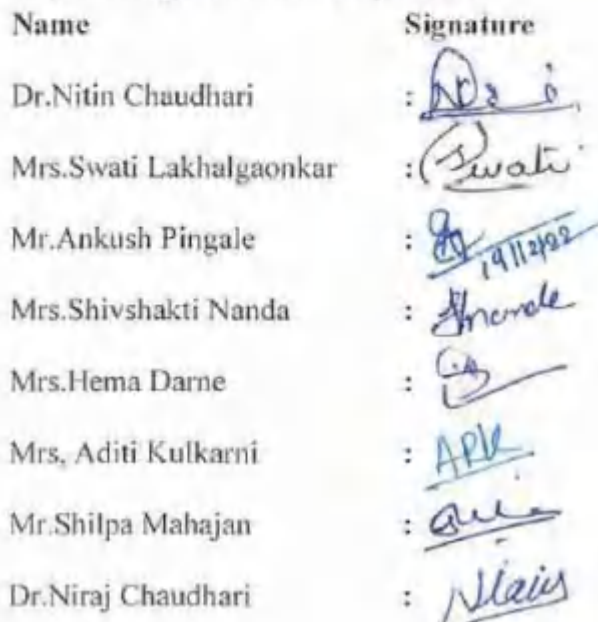 Name Signature
Dr.Nitin Chaudhari :
Mrs.Swati Lakhalgaonkar : Swati
Mr.Ankush Pingale : 19/12/22
Mrs.Shivshakti Nanda :
Mrs.Hema Darne :
Mrs, Aditi Kulkarni : APK
Mr.Shilpa Mahajan :
Dr.Niraj Chaudhari :